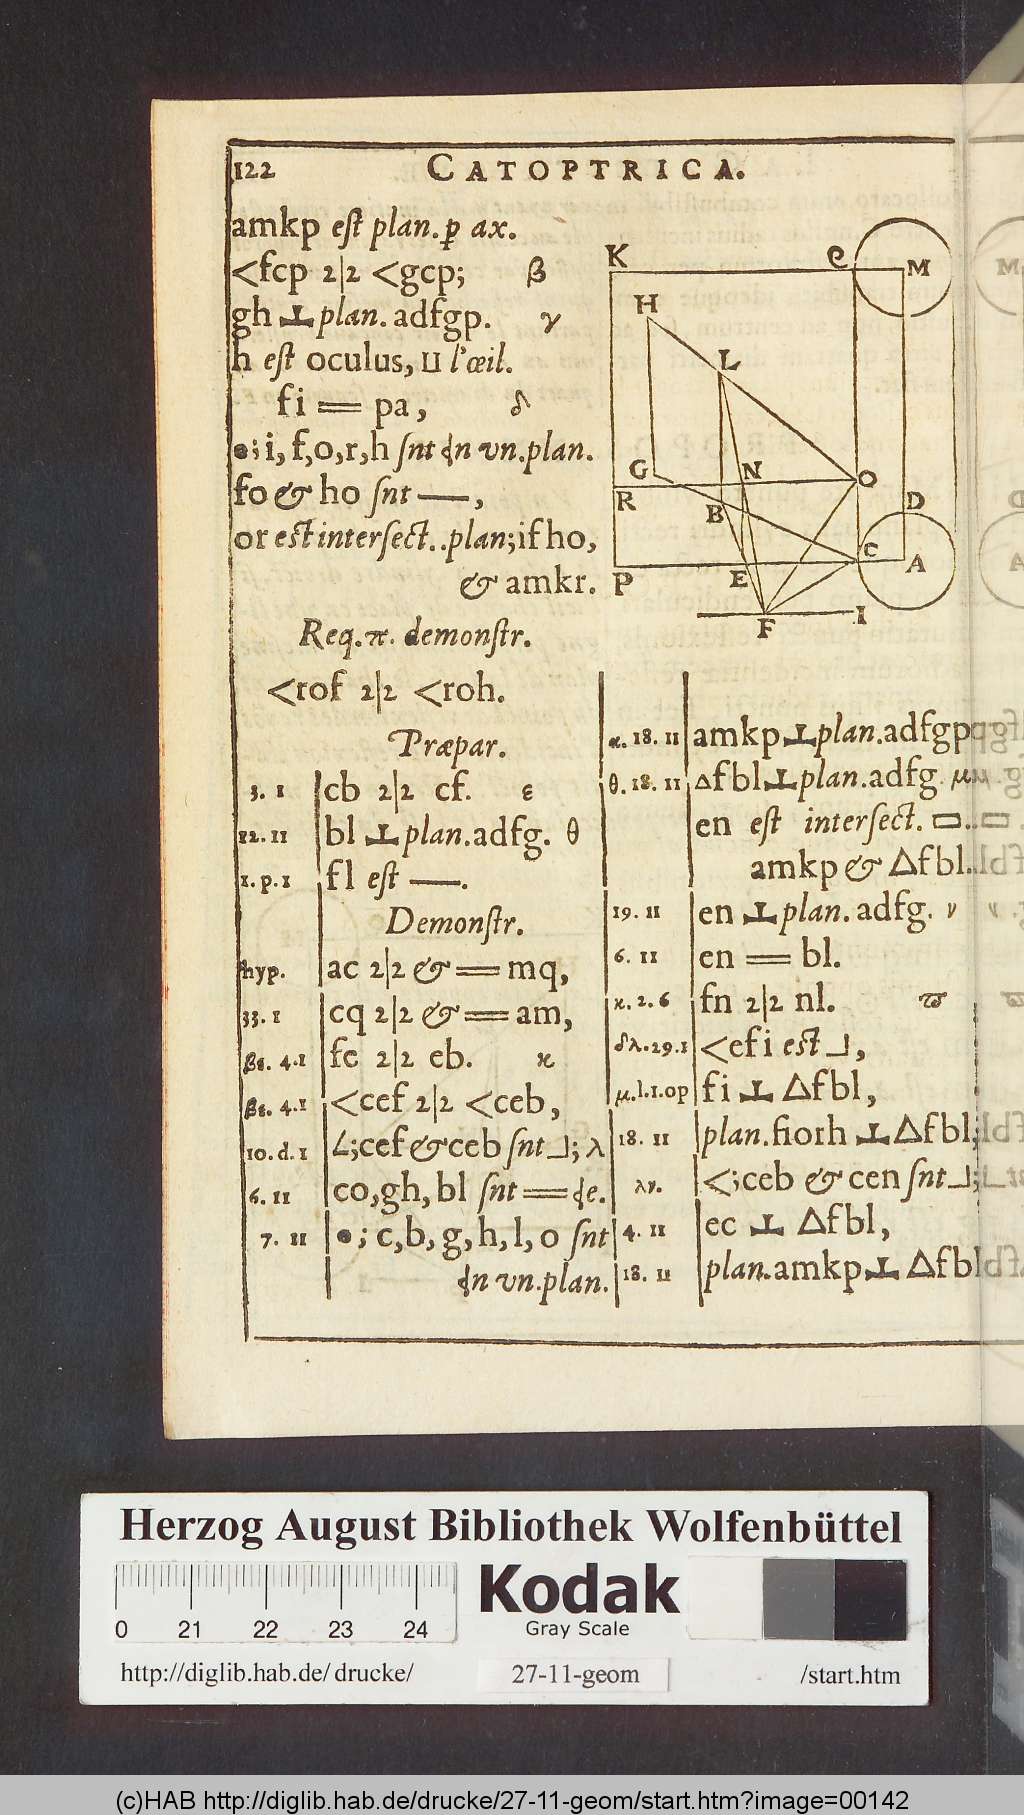 122 CATOPTRICA.
amkp est plan. p ax.
<fcp 2|2 <gcp; β
gh ⊥ plan. adfgp. γ
h est oculus, U l'œil.
fi = pa, δ
•; i, f, o, r, h snt in vn. plan.
fo & ho snt —,
or est intersect. .plan; ifho,
& amkr.
Req. π. demonstr.
<rof 2|2 <roh.
K C M
H
L
G N O
R B D
P E C A
F I
Præpar.
3. 1 cb 2|2 cf. ε
12. 11 bl ⊥ plan. adfg. θ
1. p. 1 fl est —.
Demonstr.
hyp. ac 2|2 & = mq,
33. 1 cq 2|2 & = am,
βε. 4.1 fe 2|2 eb. ϰ
βε. 4.1 <cef 2|2 <ceb,
10. d. 1 ∠; cef & ceb snt ⅃; λ
6. 11 co, gh, bl snt = de.
7. 11 •; c, b, g, h, l, o snt
in vn. plan.
α. 18. 11 amkp ⊥ plan. adfgp
θ. 18. 11 △fbl ⊥ plan. adfg. μ
en est intersect. ▭..
amkp & △fbl.
19. 11 en ⊥ plan. adfg. ν
6. 11 en = bl.
ϰ. 2. 6 fn 2|2 nl. ϖ
δλ. 29. 1 <efi est ⅃,
μ. l. 1. op fi ⊥ △fbl,
18. 11 plan. fiorh ⊥ △fbl;
λν. <; ceb & cen snt ⅃;
4. 11 ec ⊥ △fbl,
18. 11 plan. amkp ⊥ △fbl
Herzog August Bibliothek Wolfenbüttel
0 21 22 23 24
Kodak
Gray Scale
http://diglib.hab.de/drucke/ 27-11-geom /start.htm
(c)HAB http://diglib.hab.de/drucke/27-11-geom/start.htm?image=00142